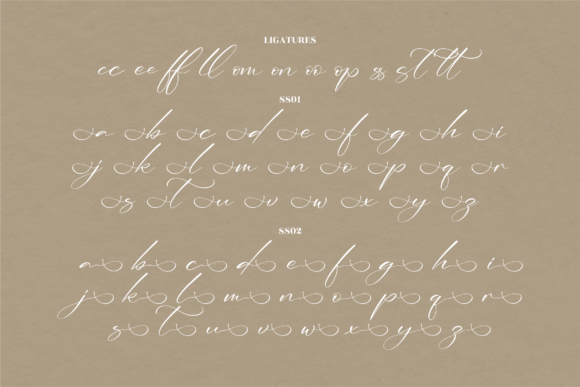 LIGATURES
cc ee ff ll om on oo op ss st tt
SS01
a b c d e f g h i
j k l m n o p q r
s t u v w x y z
SS02
a b c d e f g h i
j k l m n o p q r
s t u v w x y z